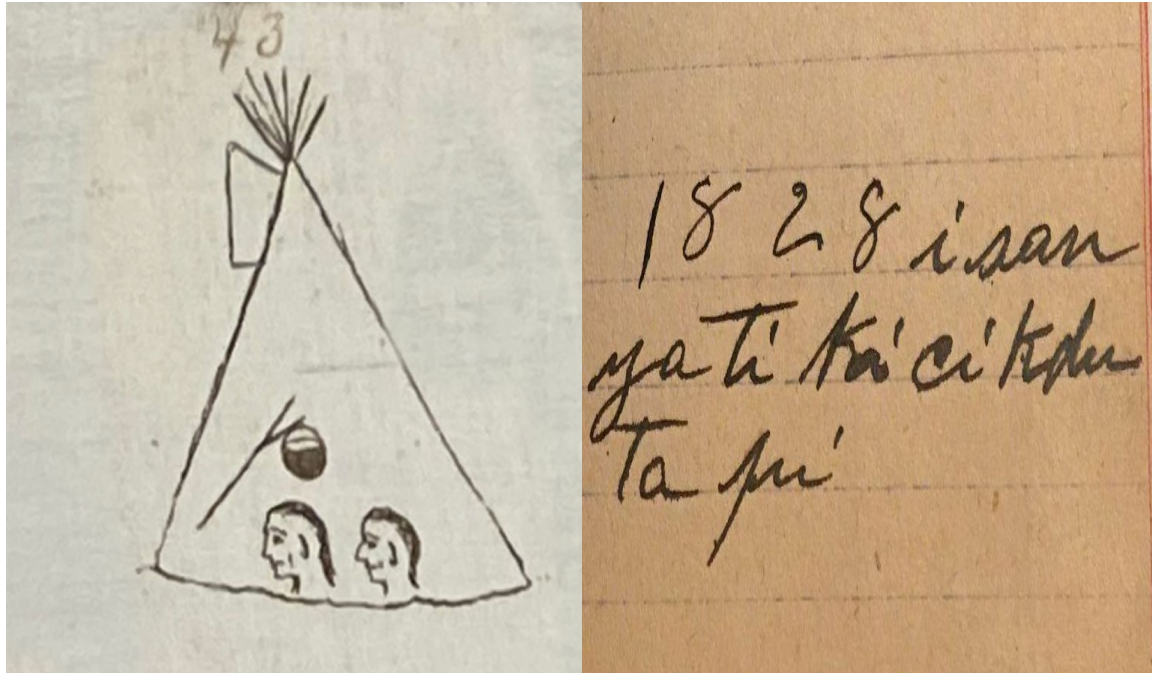 43
1828 isan
yati ka ci kdu
ta pi